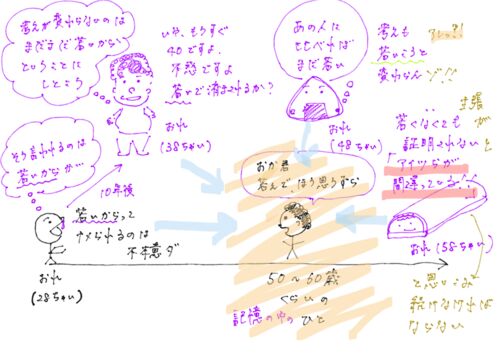 答えが変わらないのは
まだまだ若いから
ということに
しとこう
いや、もうすぐ
40ですよ.
不惑ですよ
若いで済まされるか?
おれ
(38ちゃい)
あの人に
くらべれば
まだ若い
おれ
(48ちゃい)
考えも
若いころと
変わらんゾ!!
アレッ?!
若くなくても
証明されない
主張が
「アイツらが
間違っている!!」
おれ(58ちゃい)
と思いこみ
続けなければ
ならない
そう言われるのは
若いからか
10年後
若いからって
ナメられるのは
不本意ダ
おれ
(28ちゃい)
お前君
若んで
50～60歳
くらいの
記憶の中のひと